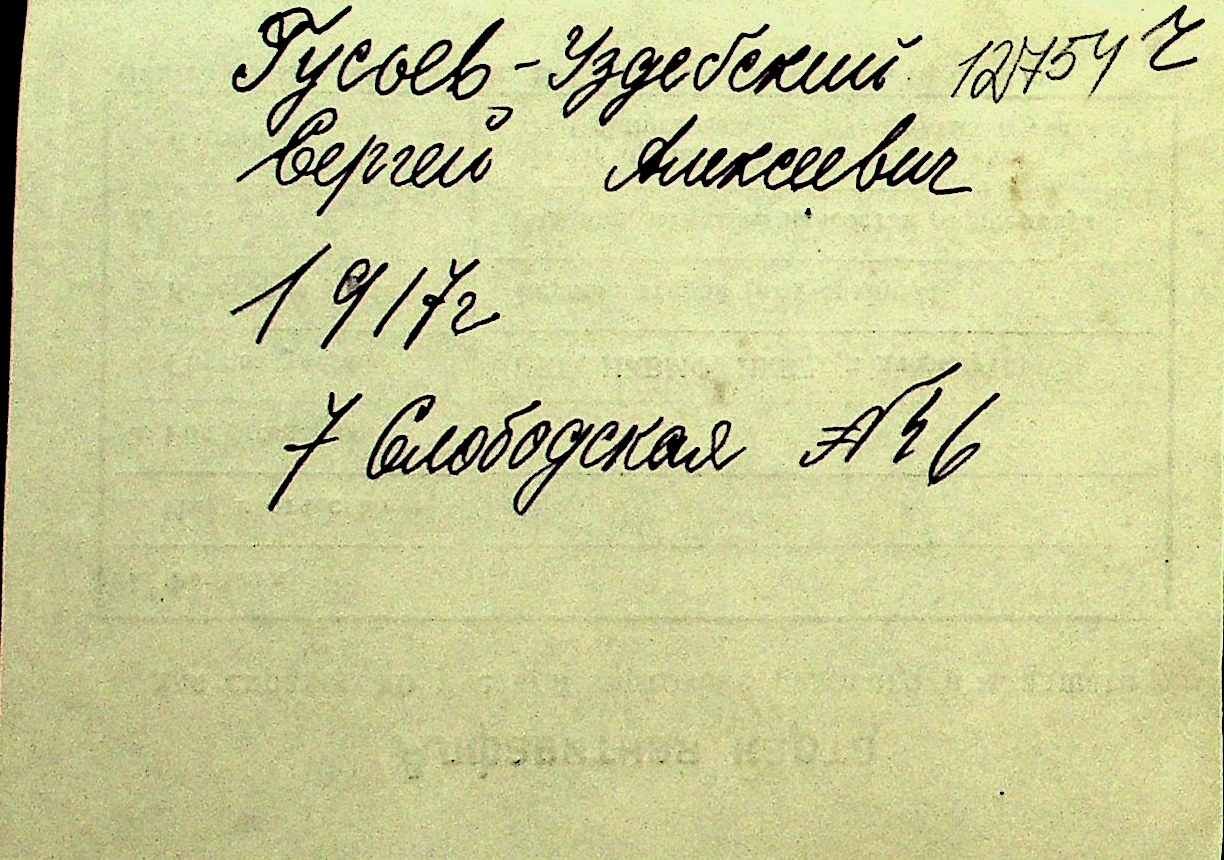 Гусоев-Уздебский 12754 Ч
Сергей Алексеевич
1917г
7 Слободская №36